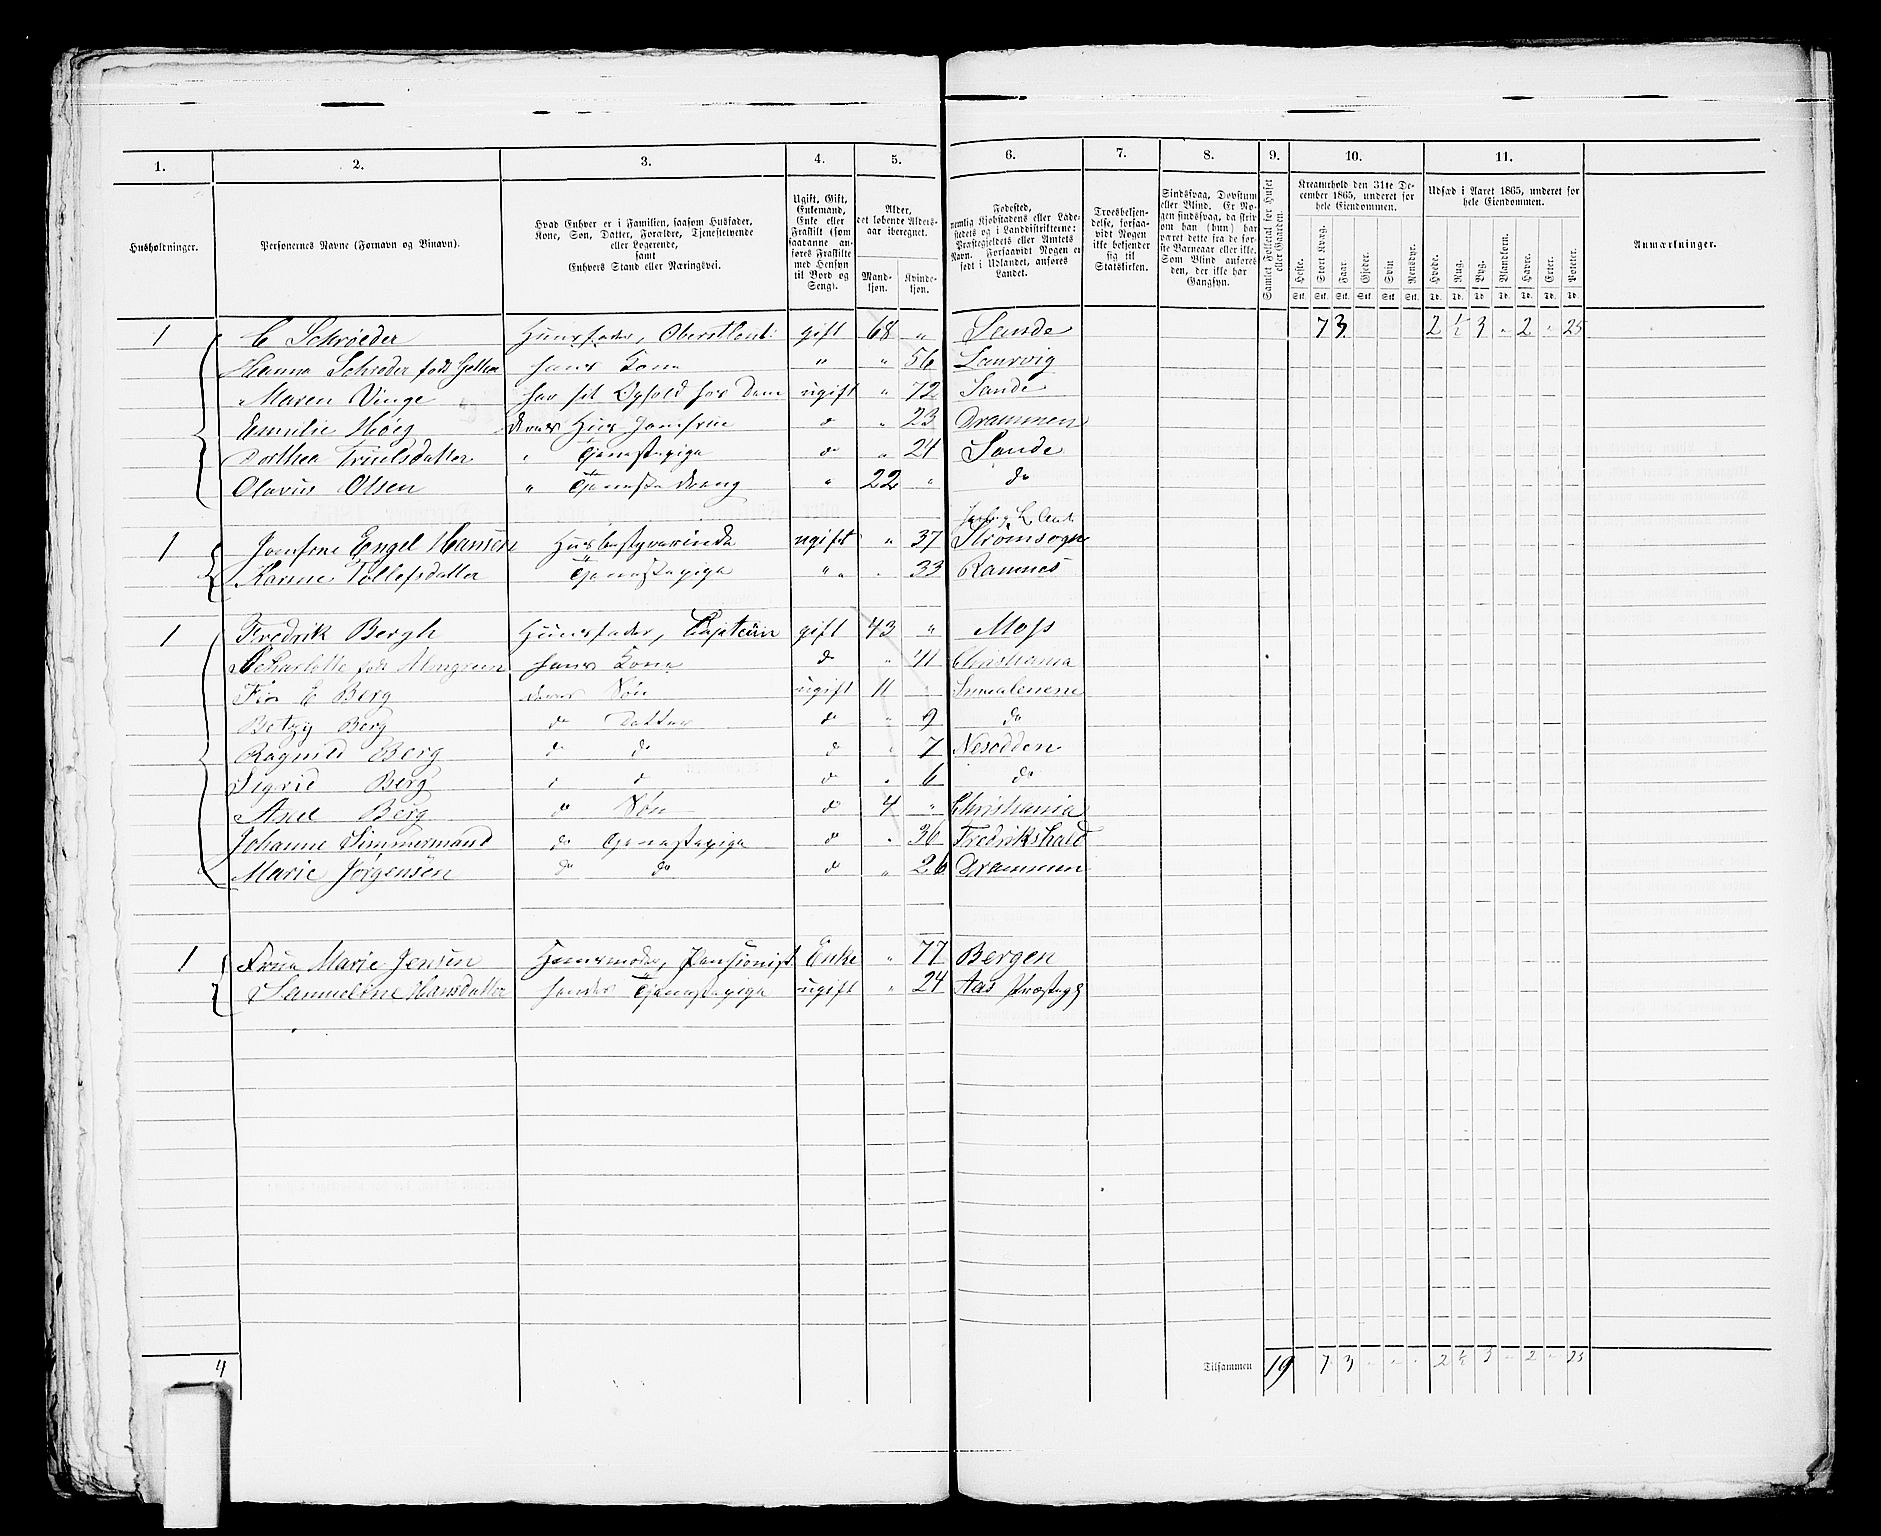 1. 2. 3. 4. 5. 6. 7. 8. 9. 10. 11.
Husholdninger.
Personernes Navne (Fornavn og Tilnavn).
Hvad Enhver er i Familien, saasom Husfader,
Kone, Søn, Datter, Forældre, Tjenestetyende
eller Logerende,
samt
Enhvers Stand eller Næringsvei.
Ugift, Gift,
Enkemand,
Enke eller
Fraskilt (som
saadanne an-
føres Fraskilte
med Hensyn
til Bord og
Seng).
Alder,
det løbende Alders-
aar iberegnet.
Mand-
kjøn.
Kvinde-
kjøn.
Fødested,
nemlig Kjøbstadens eller Lade-
stedets og i Landdistrikterne:
Præstegjeldets eller Amtets
Navn. Forsaavidt Nogen er
født i Udlandet, anføres
Landet.
Troesbekjen-
delse, forsaa-
vidt Nogen
ikke bekjender
sig til
Statskirken.
Sindssvag, Døvstum
eller Blind. Er No-
gen sindssvag, da skriv
om han (hun) har
været dette fra de før-
ste Barneaar eller ikke.
Som Blind anføres
den, der ikke har
Gangsyn.
Samlet Folketal for Huset
eller Gaarden.
Kreaturhold den 31te De-
cember 1865, underet for
hele Eiendommen.
Heste. Stort Kvæg. Faar. Gjeder. Svin. Rensdyr.
Stk. Stk. Stk. Stk. Stk. Stk.
Udsæd i Aaret 1865, underet for
hele Eiendommen.
Hvede. Rug. Byg. Blandkorn. Havre. Erter. Poteter.
Td. Td. Td. Td. Td. Td. Td.
Anmærkninger.
1 C Schrøeder Huusfader, Oberstleut: gift 68 " Sande 7 3 2 ½ 3 - 2 - 25
Hanna Schrøder født hans Kone " " 56 Laurvig
Maren Vinge har sit Ophold hos Dem ugift " 72 Sande
Emilie Høeg deres Huus Jomfrue d " 23 Drammen
Dorthea Truelsdatter " Tjenestepige do " 24 Sande
Olavus Olsen " Tjenestedreng " 22 " do
1 Jomfrue Engel Hansen Huusbestyrerinde ugift " 37 Strømsogn
Karine Tollefsdatter Tjenestepige " " 33 Ramnes
1 Fredrik Bergh Huusfader, Capteiin gift 43 " Moss
Charlotte født Almgreen hans Kone d " 41 Christiania
E Berg deres Søn ugift 11 Smaalenene
Betzy Berg do Datter d " 9 do
Ragnild Berg do do d " 7 Nesodden
Sigrid Berg d d d " 6 do
Axel Berg do Søn do 4 " Christiania
Johanne Simmermand do Tjenestepige d " 36 Fredrikshald
Marie Jørgensen do do d " 26 Drammen
1 Frue Marie Jensen Huusmoder, Pensionist Enke " 77 Bergen
Samueline Hansdatter hendes Tjenestepige ugift " 24 Aas Præstegj
4 Tilsammen 19 7 3 - - - 2 ½ 3 - 2 - 25